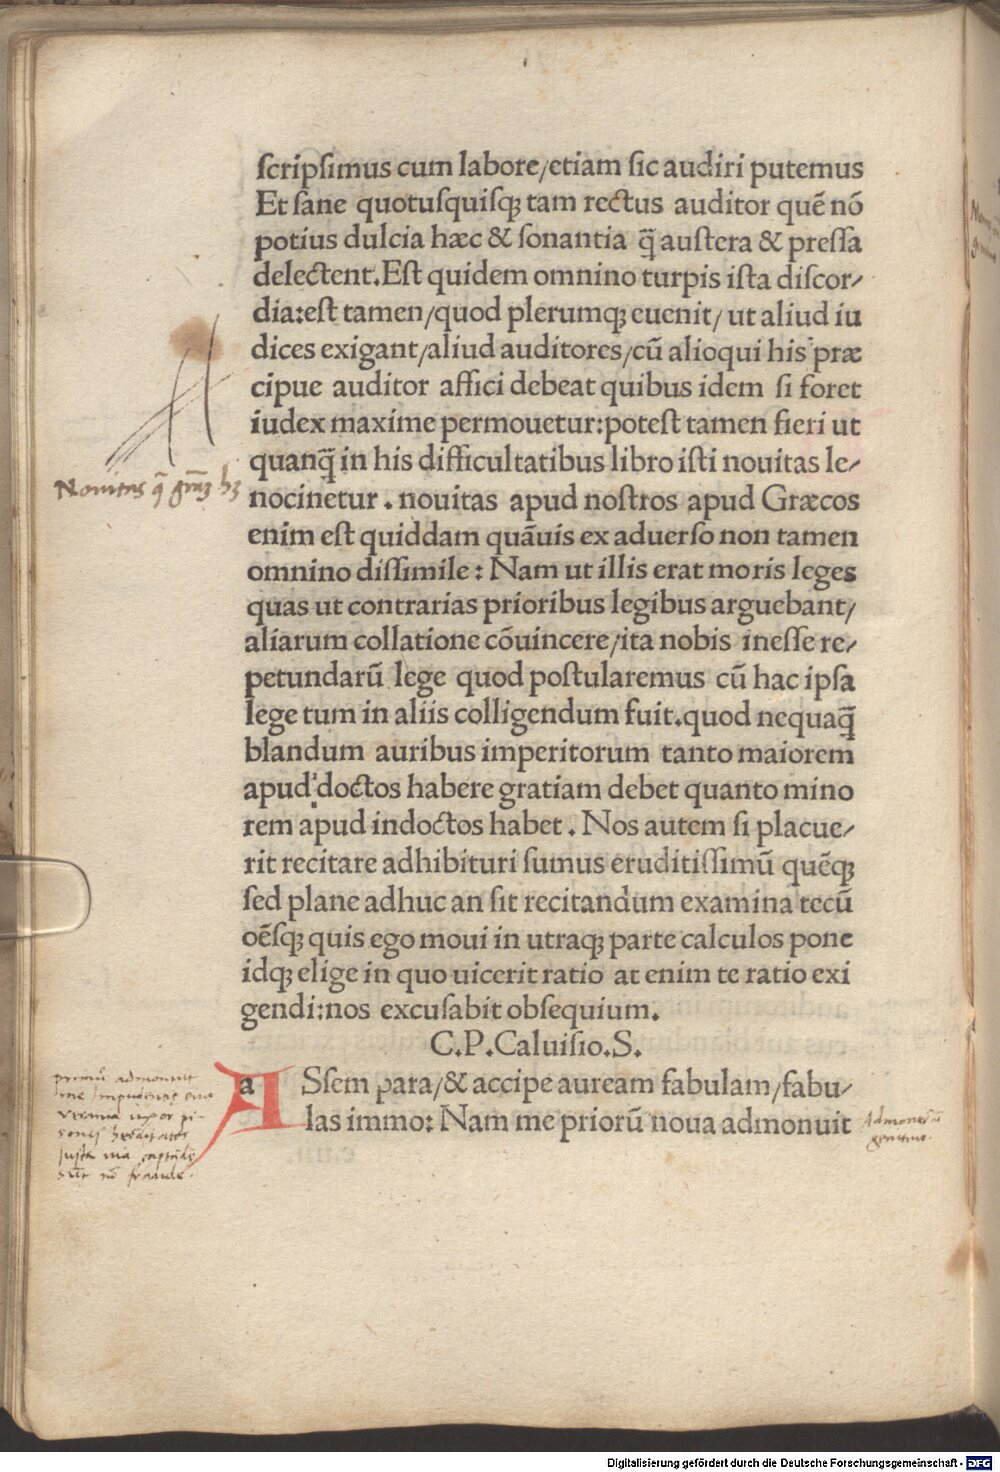 ſcripſimus cum labore/etiam ſic audiri putemus
Et ſane quotuſquiſqꝫ tam rectus auditor quē nō
potius dulcia hæc & ſonantia q̄ auſtera & preſſa
delectent.Eſt quidem omnino turpis iſta diſcor/
dia:eſt tamen/quod plerumqꝫ euenit/ ut aliud iu
dices exigant/aliud auditores/cū alioqui his præ
cipue auditor affici debeat quibus idem ſi foret
iudex maxime permouetur:poteſt tamen fieri ut
quanq̄ in his difficultatibus libro iſti nouitas le/
Nouitas
nocinetur . nouitas apud noſtros apud Græcos
enim eſt quiddam quāuis ex aduerſo non tamen
omnino diſſimile: Nam ut illis erat moris leges
quas ut contrarias prioribus legibus arguebant/
aliarum collatione cōuincere/ita nobis ineſſe re/
petundarū lege quod poſtularemus cū hac ipſa
lege tum in aliis colligendum fuit.quod nequaq̄
blandum auribus imperitorum tanto maiorem
apud doctos habere gratiam debet quanto mino
rem apud indoctos habet . Nos autem ſi placue/
rit recitare adhibituri ſumus eruditiſſimū quēqꝫ
ſed plane adhuc an ſit recitandum examina tecū
oēſqꝫ quis ego moui in utraqꝫ parte calculos pone
idqꝫ elige in quo uicerit ratio at enim te ratio exi
gendi:nos excuſabit obſequium.
C.P.Caluiſio.S.
A
a Sſem para/& accipe auream fabulam/fabu/
las immo: Nam me priorū noua admonuit
admonuit
uxor pi-
ſonis
Digitalisierung gefördert durch die Deutsche Forschungsgemeinschaft - DFG